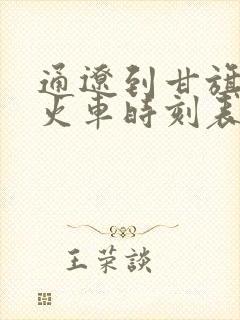 通遼到甘旗
火車時刻表
王荣談